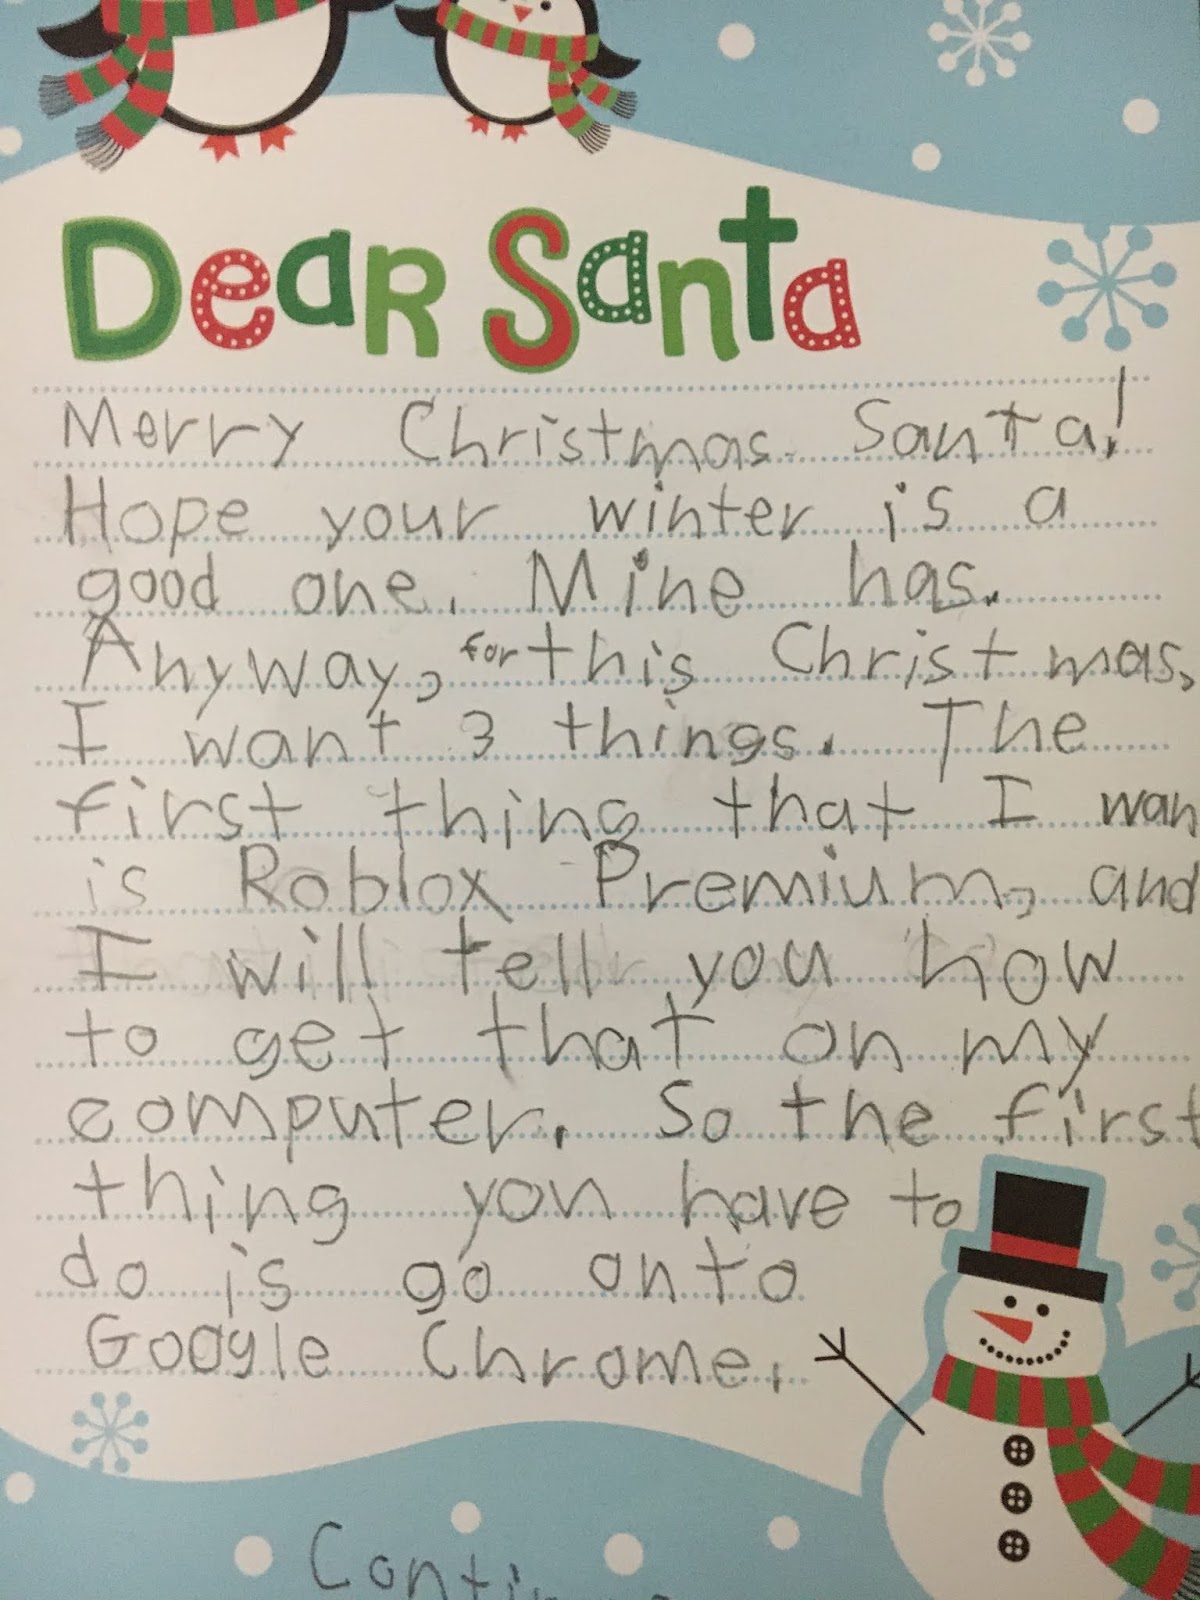 Dear Santa
Merry Christmas Santa!
Hope your winter is a
good one. Mine has.
Anyway, for this Christmas,
I want 3 things. The
first thing that I wan
is Roblox Premium, and
I will tell you how
to get that on my
computer. So the first
thing you have to
do is go onto
Google Chrome.